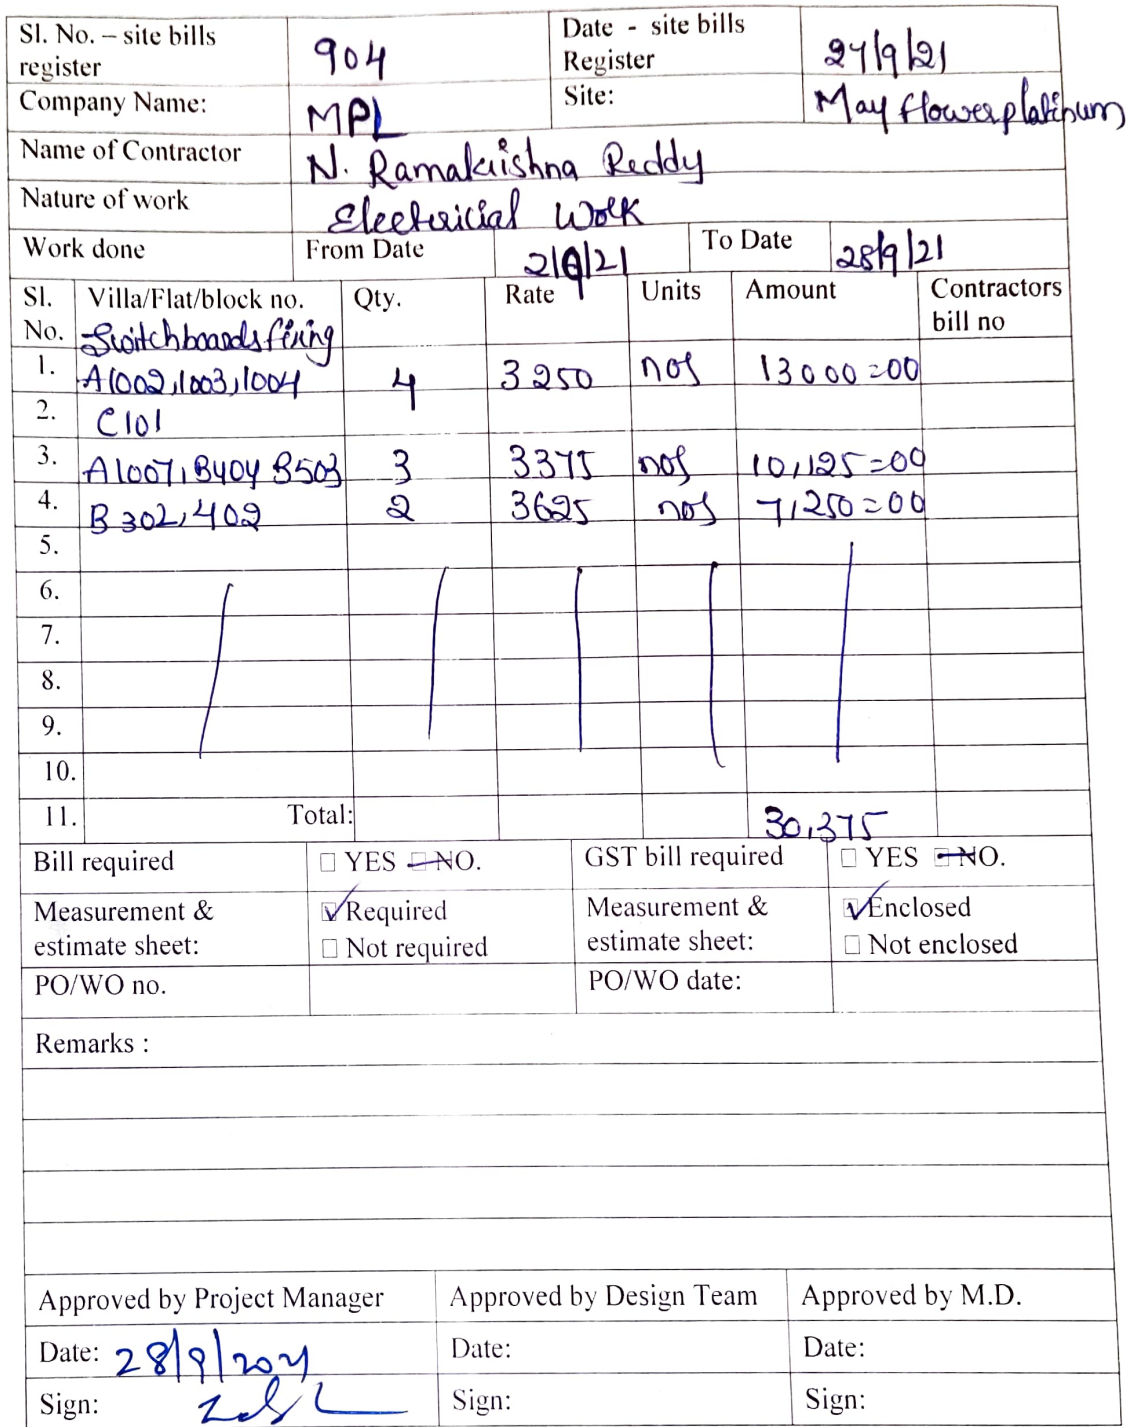 Sl. No. – site bills register 904 Date - site bills Register 27/9/21
Company Name: MPL Site: May flower platinum
Name of Contractor N. Ramakrishna Reddy
Nature of work Electricial Work
Work done From Date 2/9/21 To Date 28/9/21
Sl. No. Villa/Flat/block no. Qty. Rate Units Amount Contractors bill no
Switchboards fixing
1. A1002,1003,1004 4 3250 nos 13000=00
2. C101
3. A1007, B404 B503 3 3375 nos 10,125=00
4. B302,402 2 3625 nos 7,250=00
5.
6.
7.
8.
9.
10.
11. Total: 30,375
Bill required □ YES □ NO. GST bill required □ YES □ NO.
Measurement & estimate sheet: ☑ Required □ Not required Measurement & estimate sheet: ☑ Enclosed □ Not enclosed
PO/WO no. PO/WO date:
Remarks :
Approved by Project Manager Approved by Design Team Approved by M.D.
Date: 28/9/2021 Date: Date:
Sign: Sign: Sign: